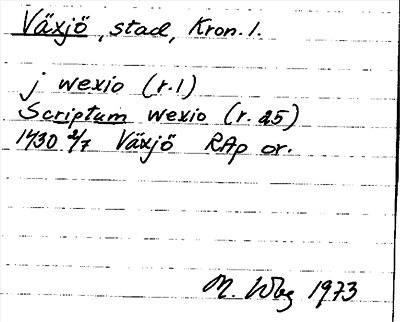 Växjö, stad, Kron. l.
j wexio (r. 1)
Scriptum wexio (r. 25)
1430 2/7 Växjö RAp or.
M. Wbg 1973